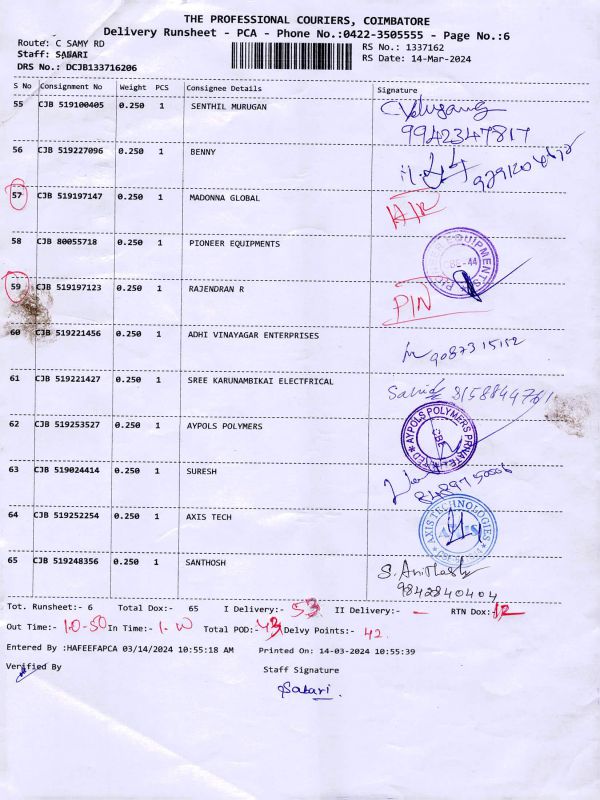 THE PROFESSIONAL COURIERS, COIMBATORE
Delivery Runsheet - PCA - Phone No.:0422-3505555 - Page No.:6
Route: C SAMY RD RS No.: 1337162
Staff: SABARI RS Date: 14-Mar-2024
DRS No.: DCJB133716206
S No Consignment No Weight PCS Consignee Details Signature
55 CJB 519100405 0.250 1 SENTHIL MURUGAN
9942347817
56 CJB 519227096 0.250 1 BENNY
57 CJB 519197147 0.250 1 MADONNA GLOBAL
58 CJB 80055718 0.250 1 PIONEER EQUIPMENTS
59 CJB 519197123 0.250 1 RAJENDRAN R PIN
60 CJB 519221456 0.250 1 ADHI VINAYAGAR ENTERPRISES
61 CJB 519221427 0.250 1 SREE KARUNAMBIKAI ELECTFRICAL
62 CJB 519253527 0.250 1 AYPOLS POLYMERS AYPOLS POLYMERS PRIVATE
CBE
63 CJB 519024414 0.250 1 SURESH
64 CJB 519252254 0.250 1 AXIS TECH AXIS TECHNOLOGIES
65 CJB 519248356 0.250 1 SANTHOSH
9842840404
Tot. Runsheet:- 6 Total Dox:- 65 I Delivery:- 53 II Delivery:- - RTN Dox:- 12
Out Time:- 10-50 In Time:- Total POD:- 43 Delvy Points:- 42
Entered By :HAFEEFAPCA 03/14/2024 10:55:18 AM Printed On: 14-03-2024 10:55:39
Verified By Staff Signature
Sabari